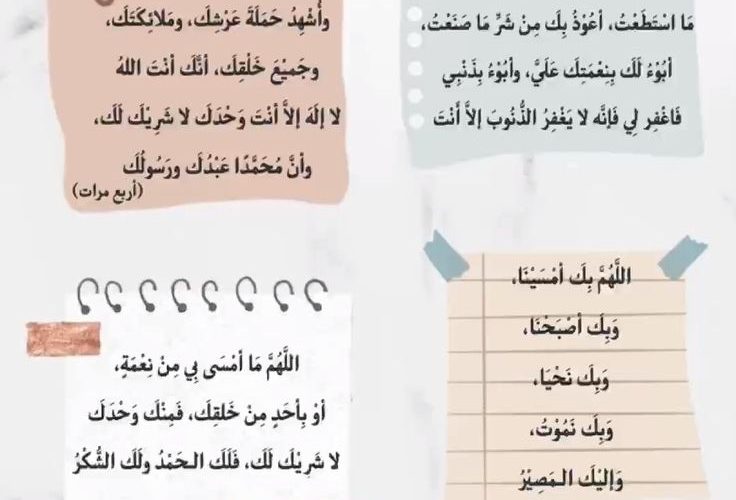 مَا اسْتَطَعْتُ، أعُوْذُ بِكَ مِنْ شَرِّ مَا صَنَعْتُ،
أبُوْءُ لَكَ بِنِعْمَتِكَ عَلَيَّ، وأبُوْءُ بِذَنْبِي
فَاغْفِر لِي فَإنَّه لا يَغْفِرُ الذُّنُوبَ إلاَّ أَنْتَ
وأُشْهِدُ حَمَلَةَ عَرْشِكَ، ومَلائِكَتَكَ،
وجَمِيْعَ خَلْقِكَ، أنَّكَ أنْتَ اللهُ
لا إلَهَ إلاَّ أنْتَ وَحْدَكَ لا شَرِيْكَ لَكَ،
وأنَّ مُحَمَّدًا عَبْدُكَ ورَسُولُكَ
(أربع مرات)
اللَّهُمَّ بِكَ أمْسَيْنَا،
وَبِكَ أصْبَحْنَا،
وَبِكَ نَحْيَا،
وَبِكَ نَمُوْتُ،
وَإلَيْكَ الـمَصِيْرُ
اللَّهُمَّ مَا أمْسَى بِي مِنْ نِعْمَةٍ،
أوْ بِأحَدٍ مِنْ خَلقِكَ، فَمِنْكَ وَحْدَكَ
لا شَرِيْكَ لَكَ، فَلَكَ الـحَمْدُ ولَكَ الشُّكْرُ